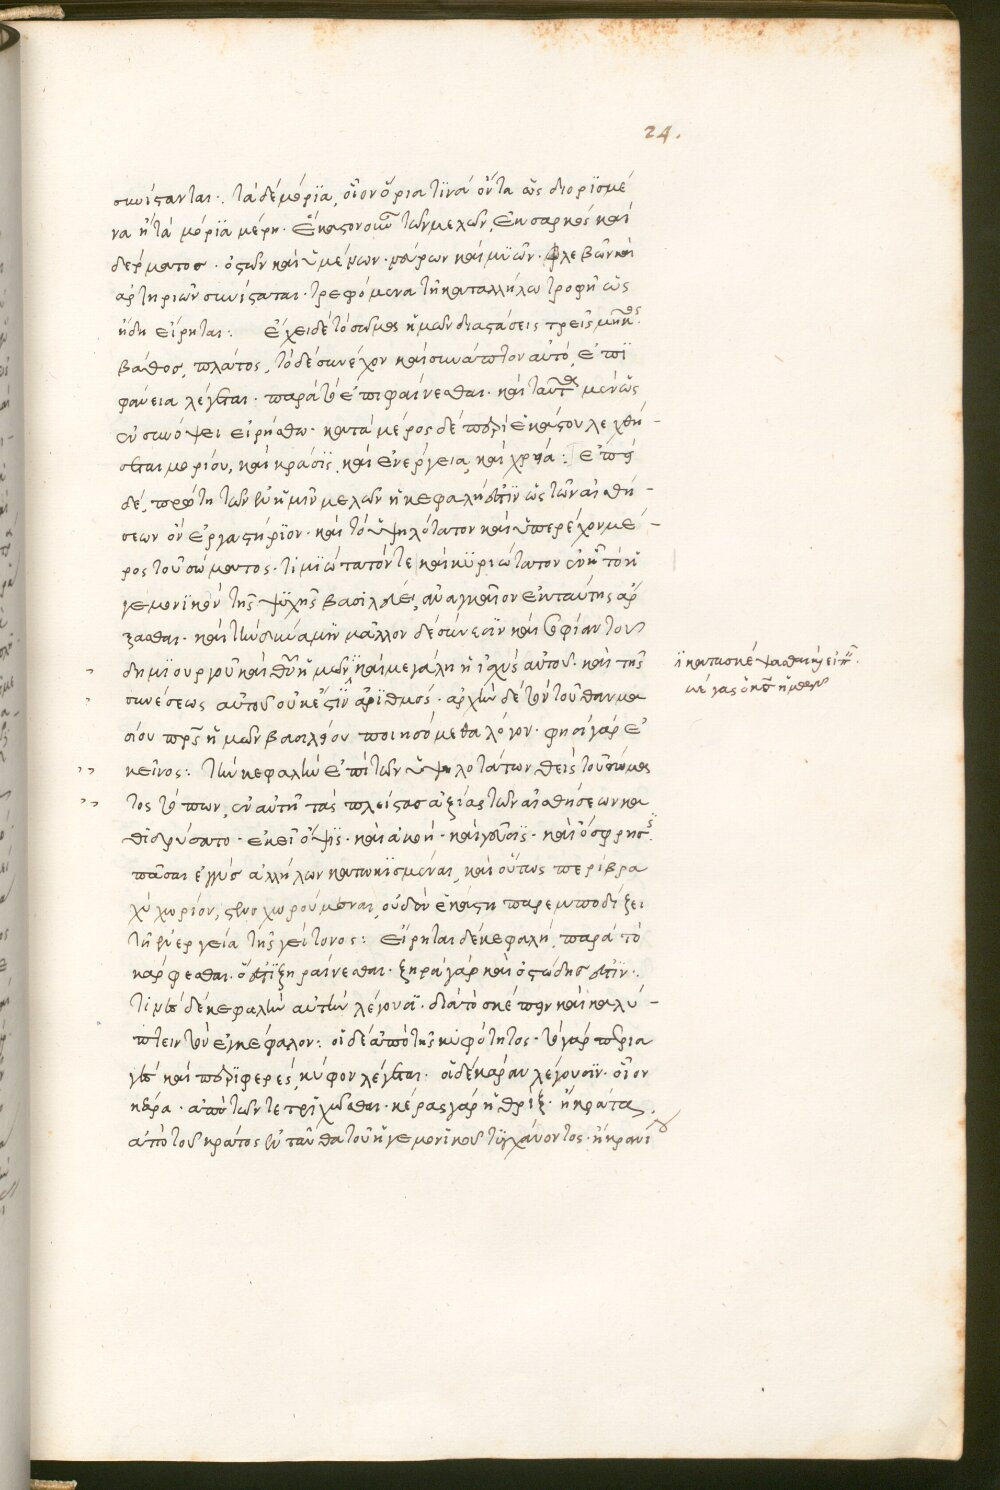 24.
συνίστανται· τὰ δὲ μόρϊα, οἷον ὅρια τϊνὰ ὄντα ὡς διορϊσμέ
να ἢ τὰ μόρϊα μέρη· ἕκαστον οὖν τῶν μελῶν, ἐκ σαρκὸς καὶ
δέρματος· ὀστῶν καὶ ὑμένων· νεύρων καὶ μυϊῶν· φλεβῶν καὶ
ἀρτηριῶν συνίσταται· τρεφόμενα τῇ καταλλήλω τροφῇ ὡς
ἤδη εἴρηται: ἔχει δὲ τὸ σῶμα ἡμῶν διαστάσεις τρεῖς μῆκος
βάθος, πλάτος, τὸ δὲ συνέχον καὶ συνάπτον αὐτὸ, ἐπϊ
φάνεια λέγεται· παρὰ τὸ ἐπιφαίνεσθαι· καὶ ταῦτα μὲν ὡς
ἐν συνόψει εἰρήσθω· κατὰ μέρος δὲ περὶ ἑκάστου λεχθή-
σεται μορίου, καὶ κρᾶσϊς, καὶ ἐνέργεια, καὶ χρεία: ἐπεὶ
δὲ, πρώτη τῶν ἐν ἡμῖν μελῶν ἡ κεφαλή ἐστϊν ὡς τῶν αἰσθή-
σεων ὂν ἐργαστήρϊον· καὶ τὸ ὑψηλότατον καὶ ὑπερέχον μέ-
ρος τοῦ σώματος· τιμϊώτατόν τε καὶ κϋριώτατον ἐν ᾧ τὸ ἡ
γεμονϊκὸν τῆς ψϋχῆς βασιλεύει, ἀναγκαῖον ἐκ ταύτης ἄρ
ξασθαι· καὶ τὴν δύναμϊν μᾶλλον δὲ σύνεσϊν καὶ σοφίαν τοῦ
δημϊουργοῦ καὶ θεοῦ ἡμῶν, καὶ μεγάλη ἡ ἰσχὺς αὐτοῦ· καὶ τῆς
συνέσεως αὐτοῦ οὐκ ἔστϊν ἀρϊθμός· ἀρχὴν δὲ τὸν τοῦ θαυμα
σίου πρς ἡμῶν βασιλείου ποιησόμεθα λόγον· φησὶ γὰρ ἐ
κεῖνος: τὴν κεφαλὴν ἐπὶ τῶν ὑψηλοτάτων θεὶς τοῦ σώμα
τος τόπων, ἐν αὐτῇ τὰς πλείστας ἀξίας τῶν αἰσθήσεων κα
θιδρύσατο· ἐκεῖ ὄψϊς· καὶ ἀκοή· καὶ γεῦσϊς· καὶ ὄσφρησϊς
πᾶσαι ἐγγὺς ἀλλήλων κατωκϊσμέναι, καὶ οὕτως περὶ βρα
χὺ χωρίον, στενοχωρούμεναι, οὐδὲν ἑκάστη παρεμποδίζει
τῇ ἐνεργεία τῆς γείτονος: εἴρηται δὲ κεφαλή, παρὰ τὸ
κάρφεσθαι· ὅ ἐστϊ ξηραίνεσθαι· ξηρὰ γὰρ καὶ ὀστώδης ἐστϊν·
τινὲς δὲ κεφαλὴν αὐτὴν λέγουσϊ· διὰ τὸ σκέπειν καὶ καλύ-
πτειν τὸν ἐγκέφαλον: οἱ δὲ ἀπὸ τῆς κυφότητος· τὸ γὰρ περια
γὲς καὶ περϊφερὲς, κύφον λέγεται· οἱ δὲ κάραν λέγουσϊν· οἷον
κέρα· ἀπὸ τῶν τετρϊχῶσθαι· κέρας γὰρ ἡ θρίξ· ἢ κράτα,
ἀπὸ τοῦ κράτος ἐνταῦθα τοῦ ἡγεμονϊκοῦ τϋγχάνοντος· ἢ κρανί
ϊ κατασκέψασθαι
μέγας ὁ κς ἡμῶν